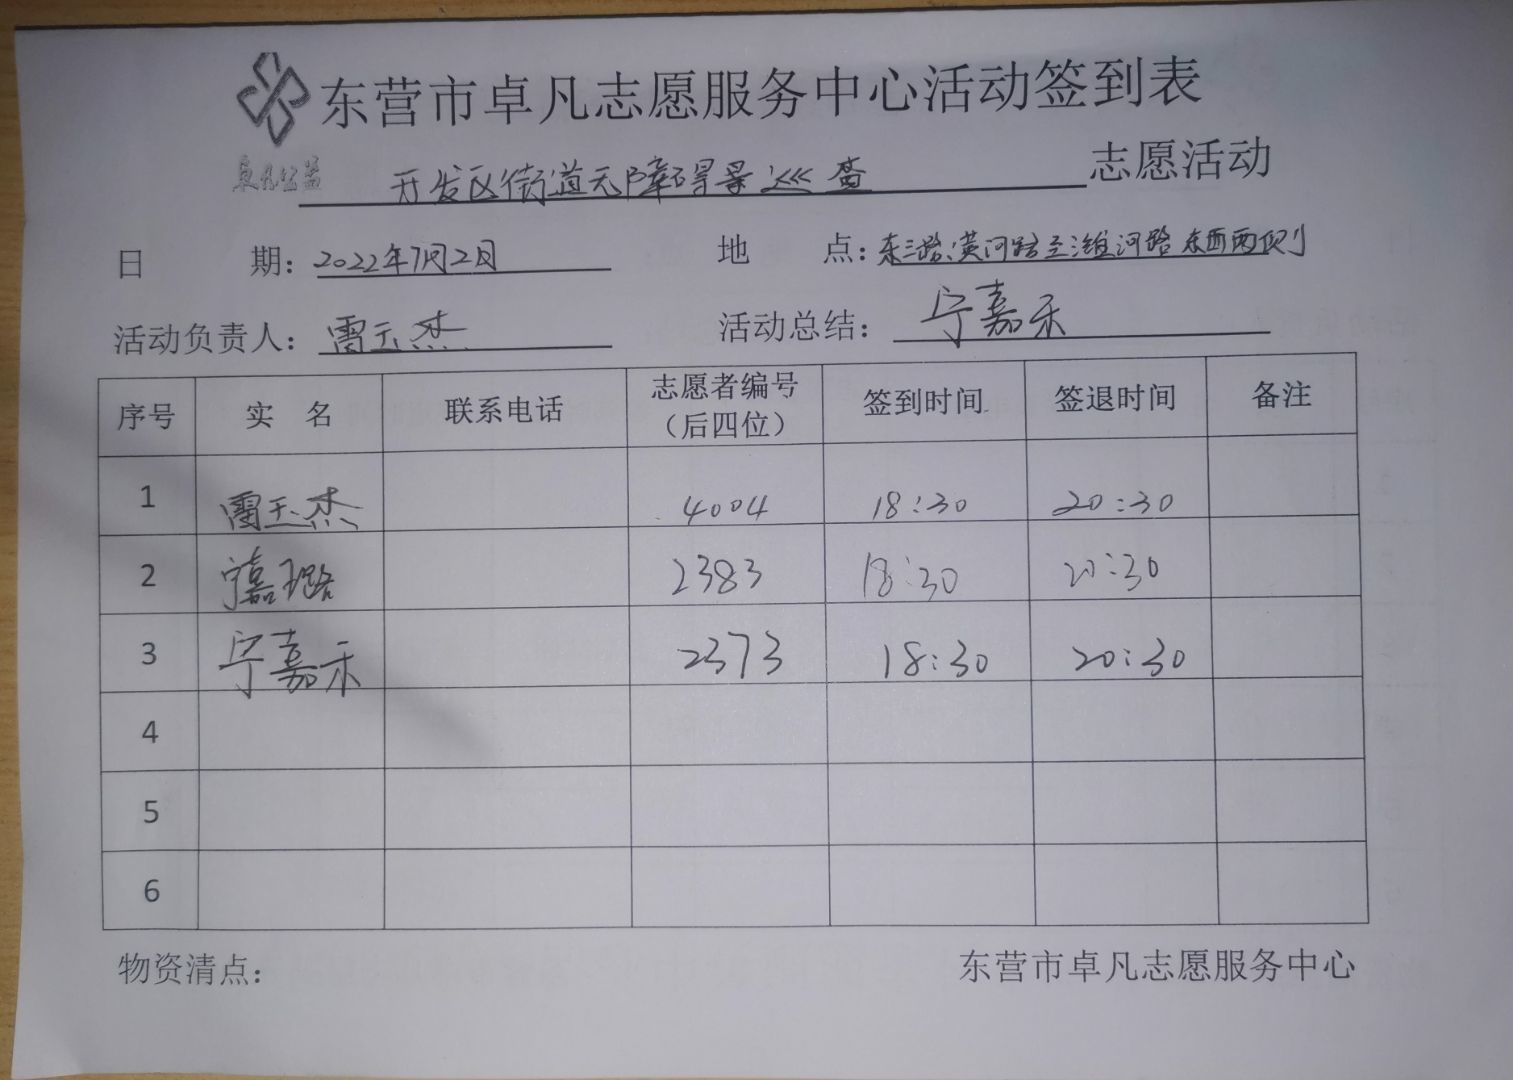 东营市卓凡志愿服务中心活动签到表
卓凡公益
开发区街道无障碍导巡查 志愿活动
日 期：2022年7月2日 地 点：东三路：黄河路至潍河路 东西两侧
活动负责人：雷玉杰 活动总结：宁嘉禾
序号 实 名 联系电话 志愿者编号（后四位） 签到时间 签退时间 备注
1 雷玉杰 4004 18:30 20:30
2 宁嘉璐 2383 18:30 20:30
3 宁嘉禾 2373 18:30 20:30
4
5
6
物资清点： 东营市卓凡志愿服务中心